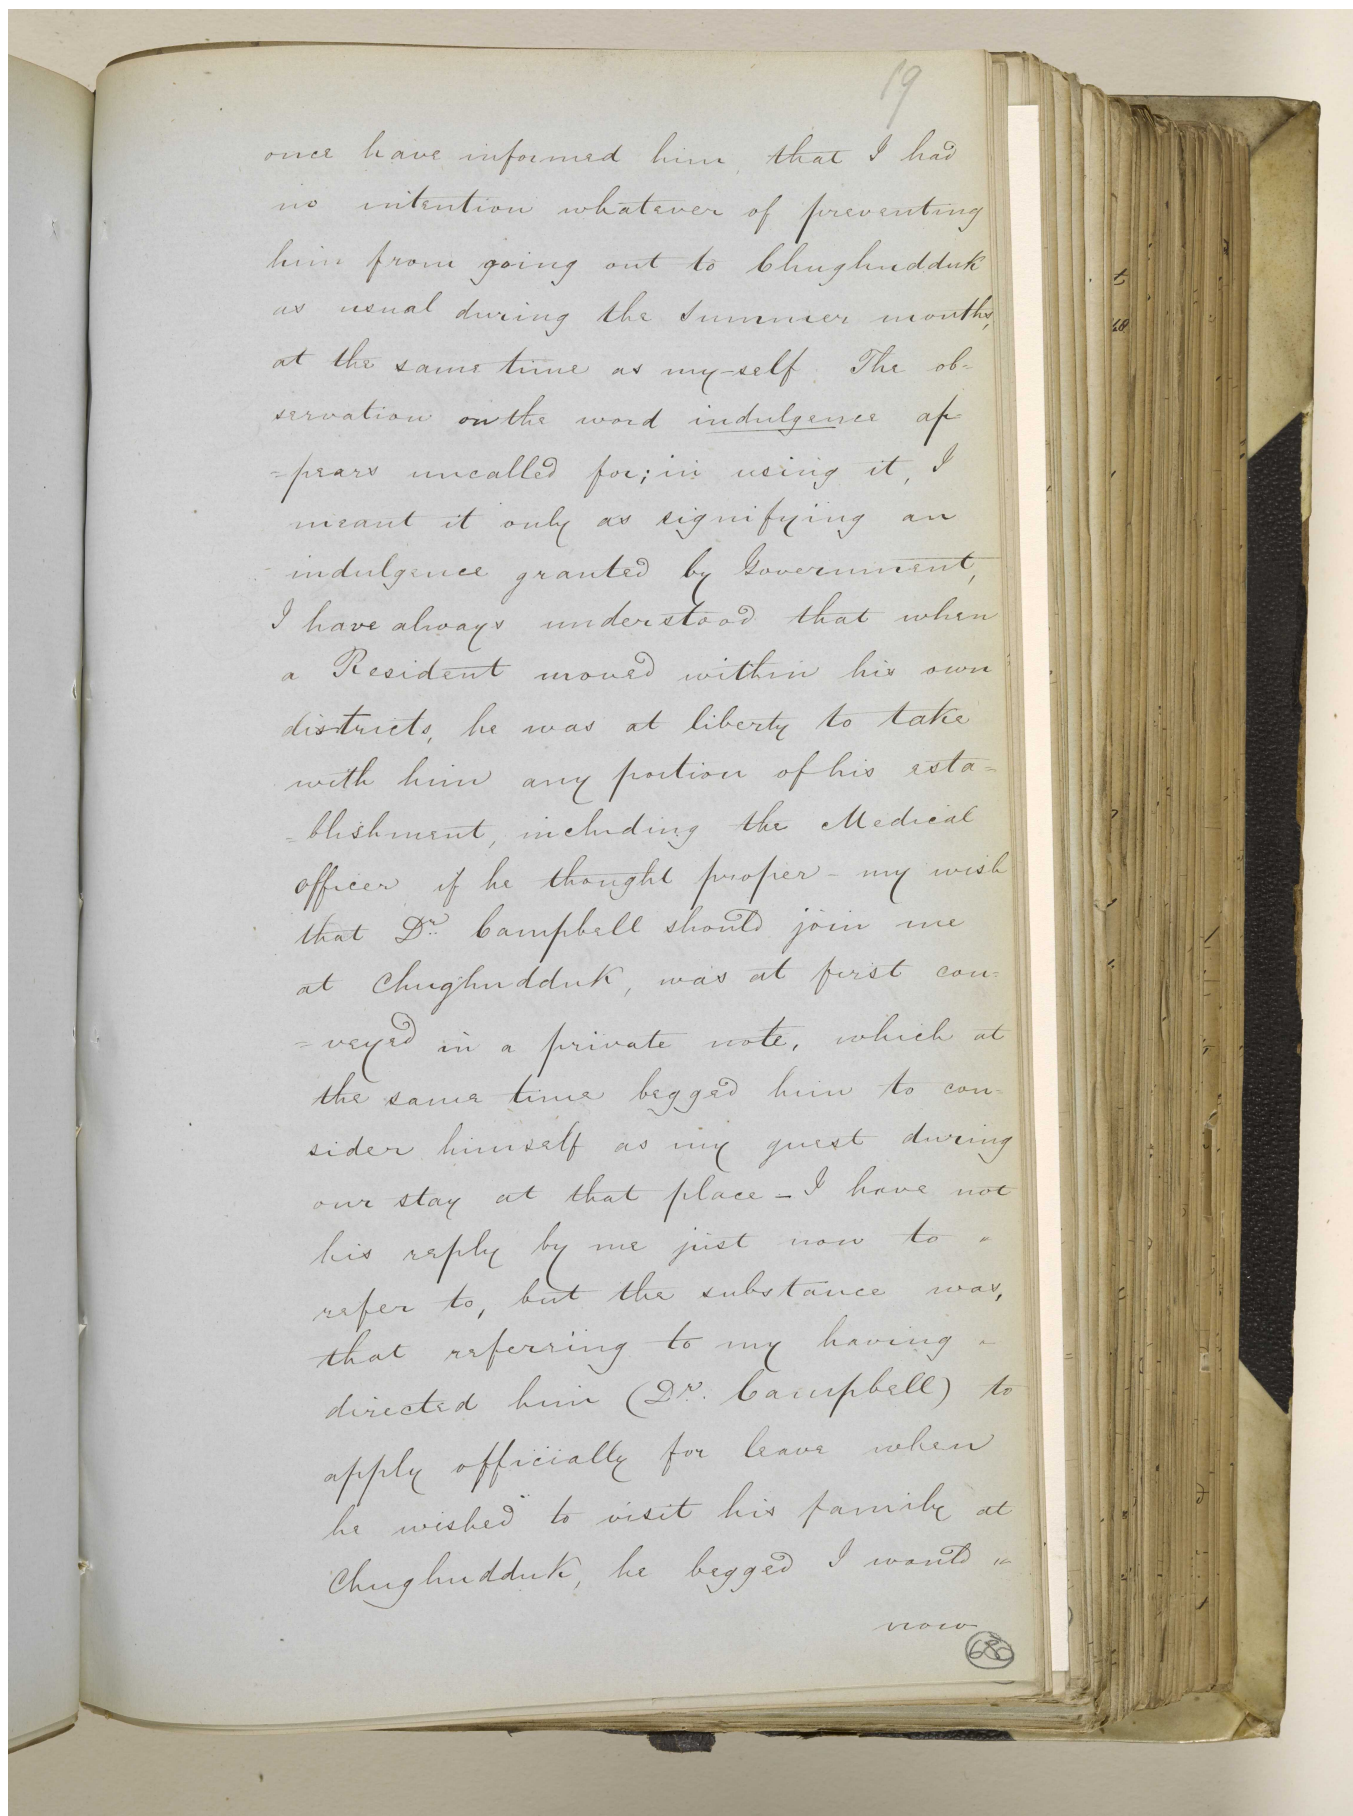 19
once have informed him, that I had
no intention whatever of preventing
him from going out to Chughudduk
as usual during the summer months,
at the same time as my-self. The ob=
servation on the word indulgence ap
=pears uncalled for; in using it, I
meant it only as signifying an
indulgence granted by Government,
I have always understood that when
a Resident moved within his own
districts, he was at liberty to take
with him any portion of his esta=
=blishment, including the Medical
officer if he thought proper - my wish
that Dr. Campbell should join me
at Chughudduk, was at first con=
=veyed in a private note, which at
the same time begged him to con-
sider himself as my guest during
our stay at that place - I have not
his reply by me just now to "
refer to, but the substance was,
that referring to my having "
directed him (Dr. Campbell) to
apply officially for leave when
he wished to visit his family at
Chughudduk, he begged I would "
now
630